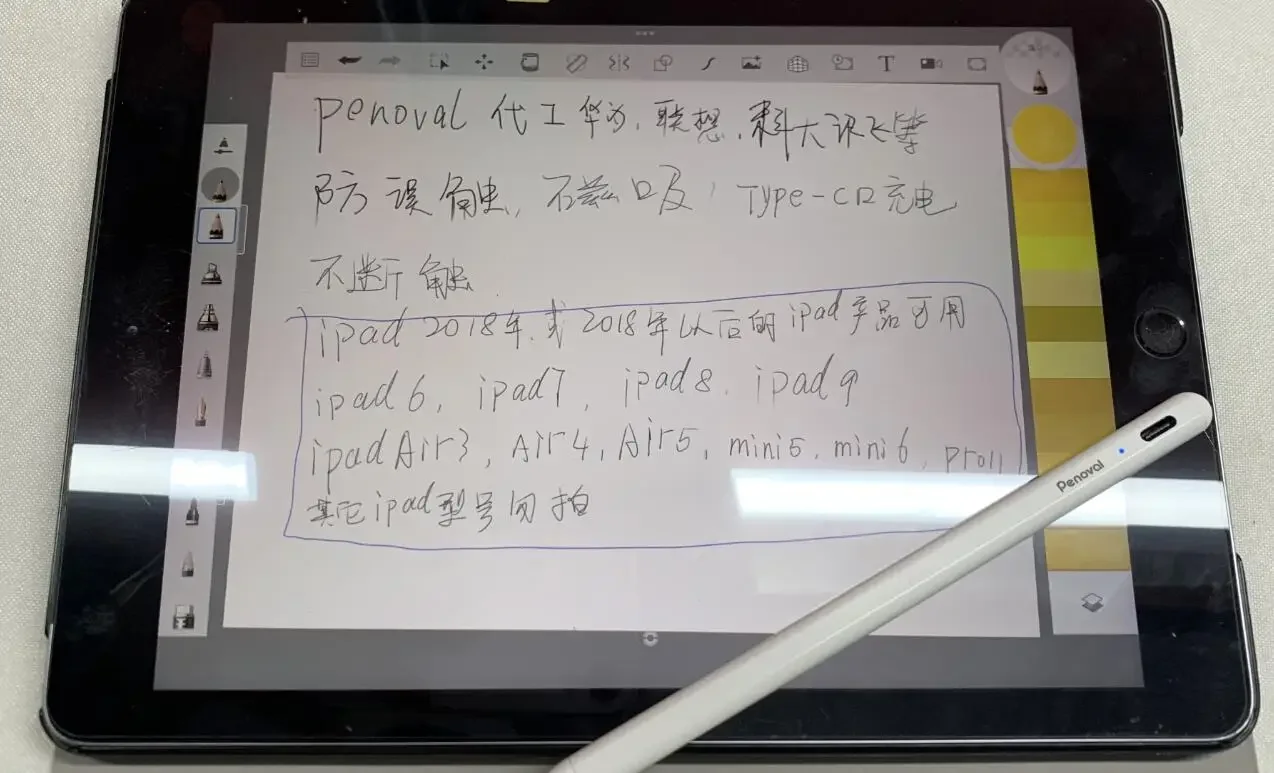 penoval 代工华为、联想、科大讯飞等
防误触, 不磁吸, Type-C口充电
不断触
ipad 2018年、或2018年以后的ipad产品可用
ipad6, ipad7, ipad8, ipad9
ipadAir3, Air4, Air5, mini5, mini6, pro11
其它ipad型号勿拍
Penoval
T